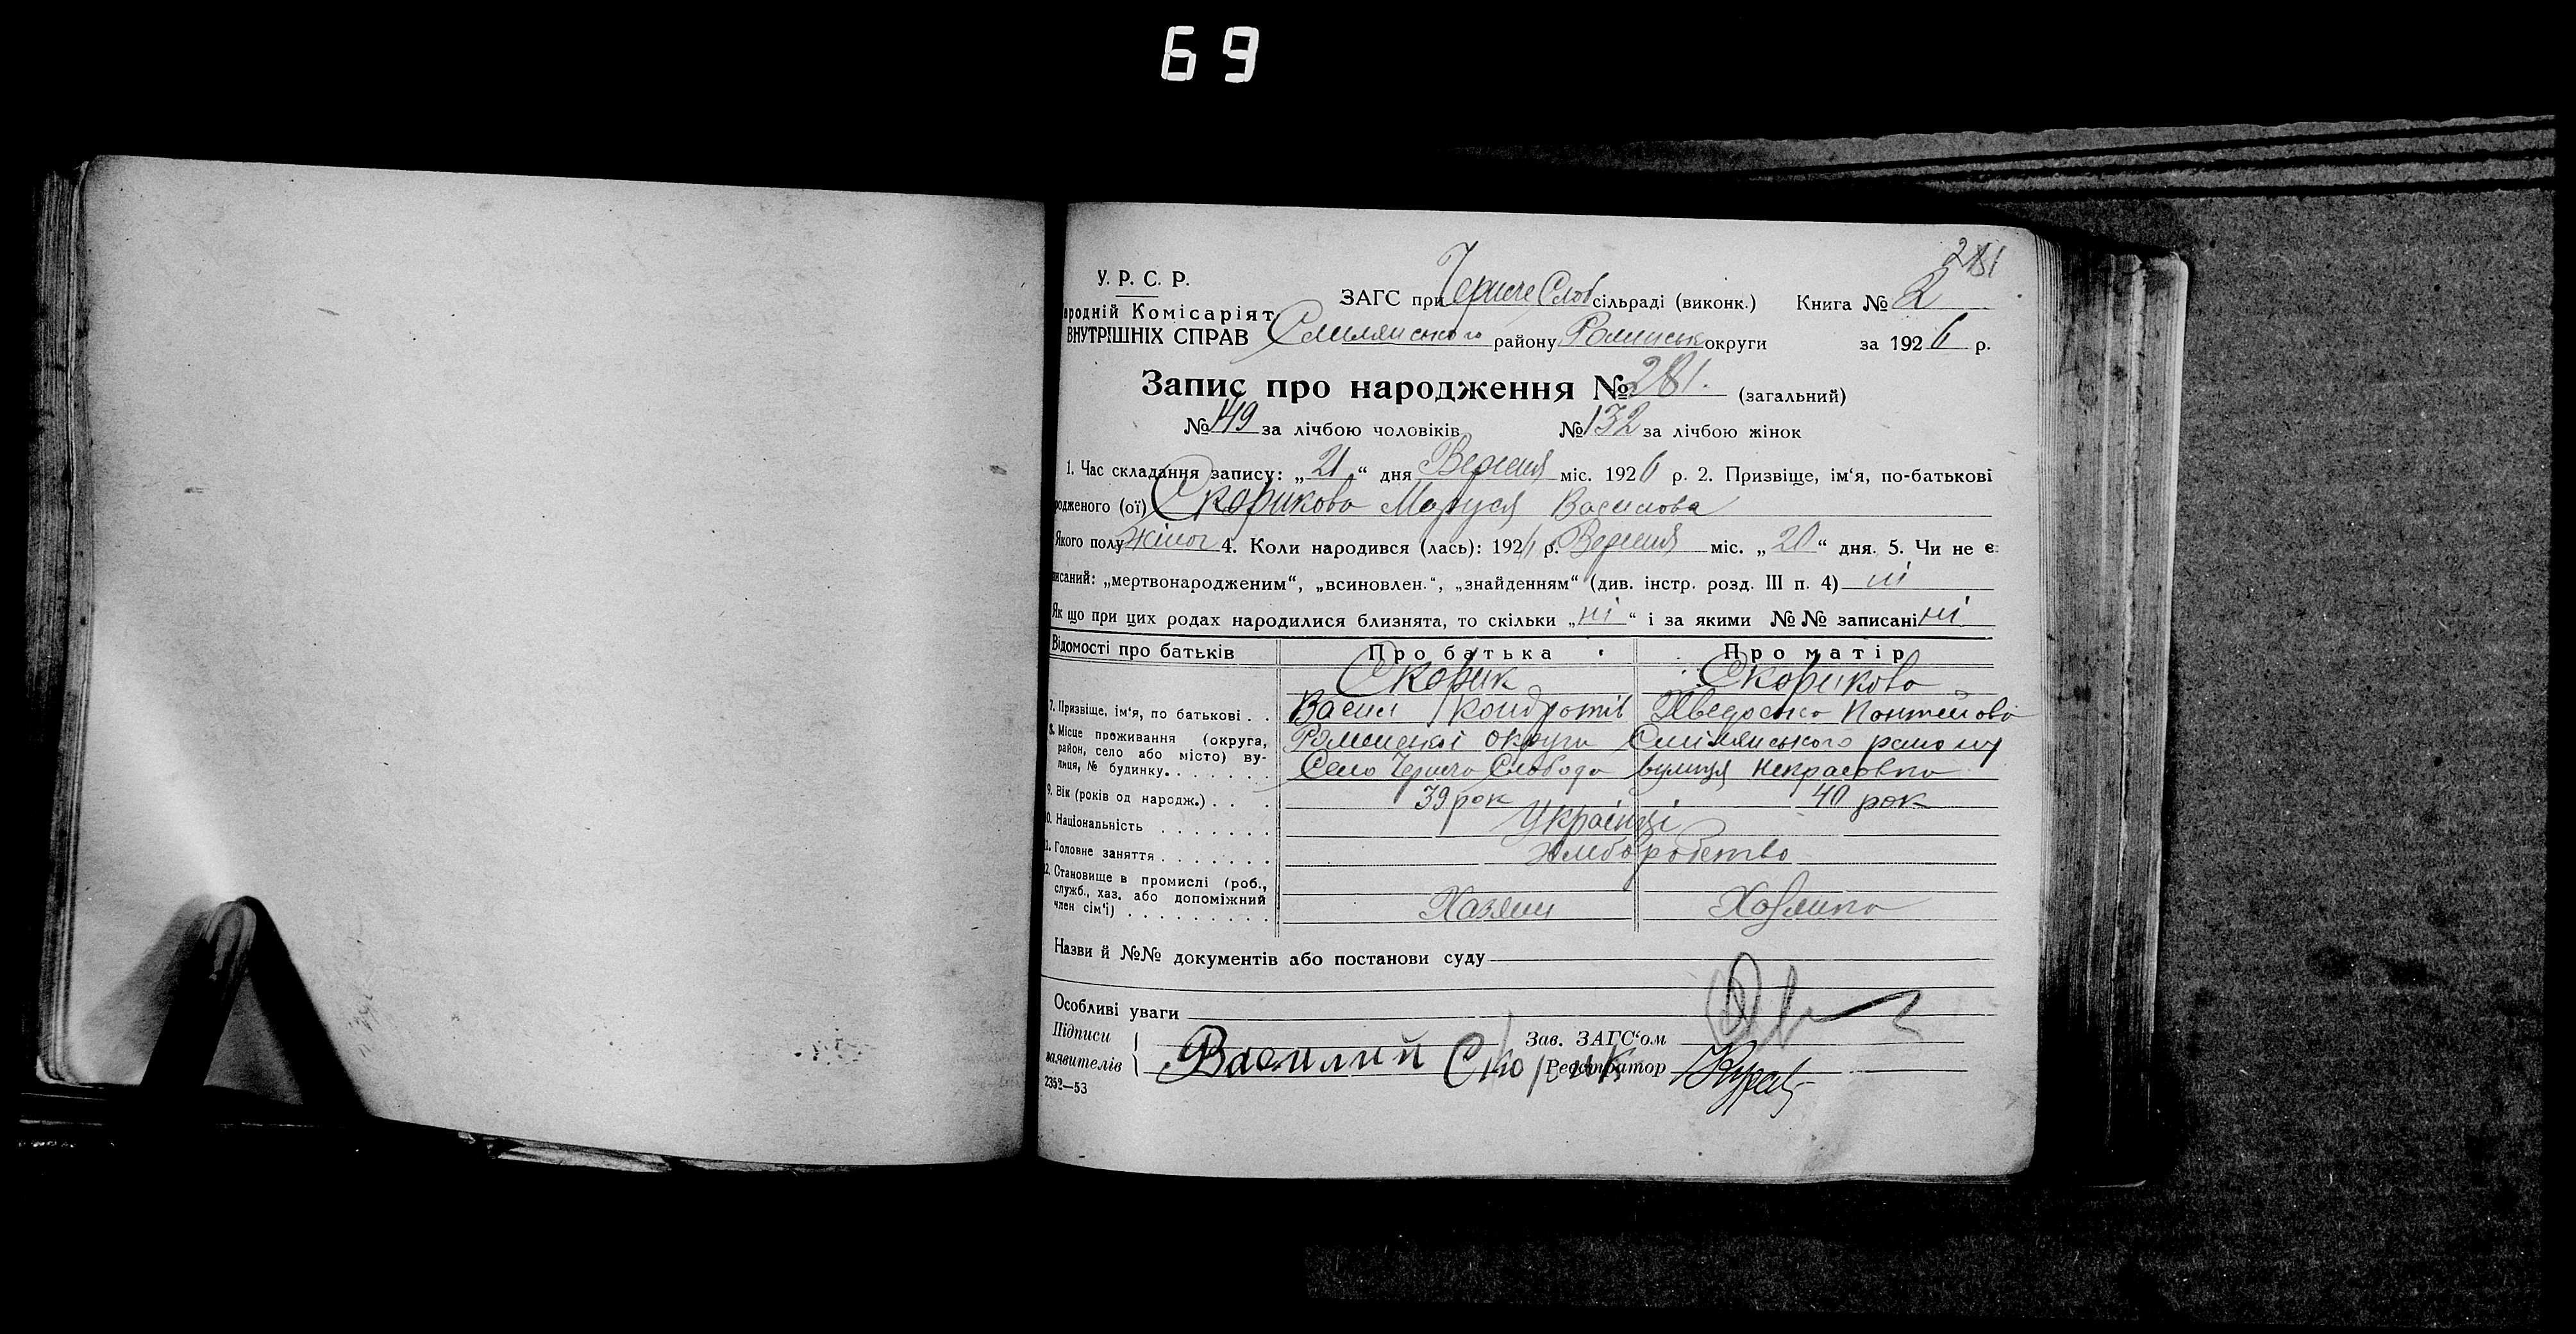 69
281
У. Р. С. Р.
ЗАГС при Чернече Слоб сільраді (виконк.) Книга № 2
ародній Комісаріят
ВНУТРІШНІХ СПРАВ Смілянського району Роменськ округи за 1926 р.
Запис про народження № 281. (загальний)
№ 149 за лічбою чоловіків № 132 за лічбою жінок
1. Час складання запису: „21“ дня Вересня міс. 1926 р. 2. Призвіще, ім‘я, по-батькові
родженого (ої) Скорикова Маруся Василова
Якого полу жіноч 4. Коли народився (лась): 1926 р. Вересня міс. „20“ дня. 5. Чи не є
писаний: „мертвонародженим“, „всиновлен.“, „знайденням“ (див. інстр. розд. III п. 4) ні
Як що при цих родах народилися близнята, то скільки „ні“ і за якими №№ записані ні
Відомості про батьків Про батька Про матір
Скорик Скорикова
7. Призвіще, ім‘я, по батькові . . Васил Кондротів Хведоска
8. Місце проживання (округа, район, село або місто) вулиця, № будинку. Роменської округи Смілянського району
Село Чернеча Слобода вулиця Некрасовка
9. Вік (років од народж.) . . . 39 рок 40 рок
10. Національність Українці
11. Головне заняття хліборобство
12. Становище в промислі (роб., служб., хаз. або допоміжний член сім‘ї) Хазяин Хазяика
Назви й №№ документів або постанови суду
Особливі уваги
Підписи
заявителів Василий Скорик
Зав. ЗАГС‘ом
Реєстратор
2352—53